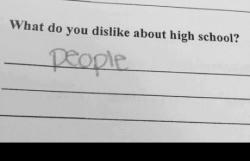 What do you dislike about high school?
people